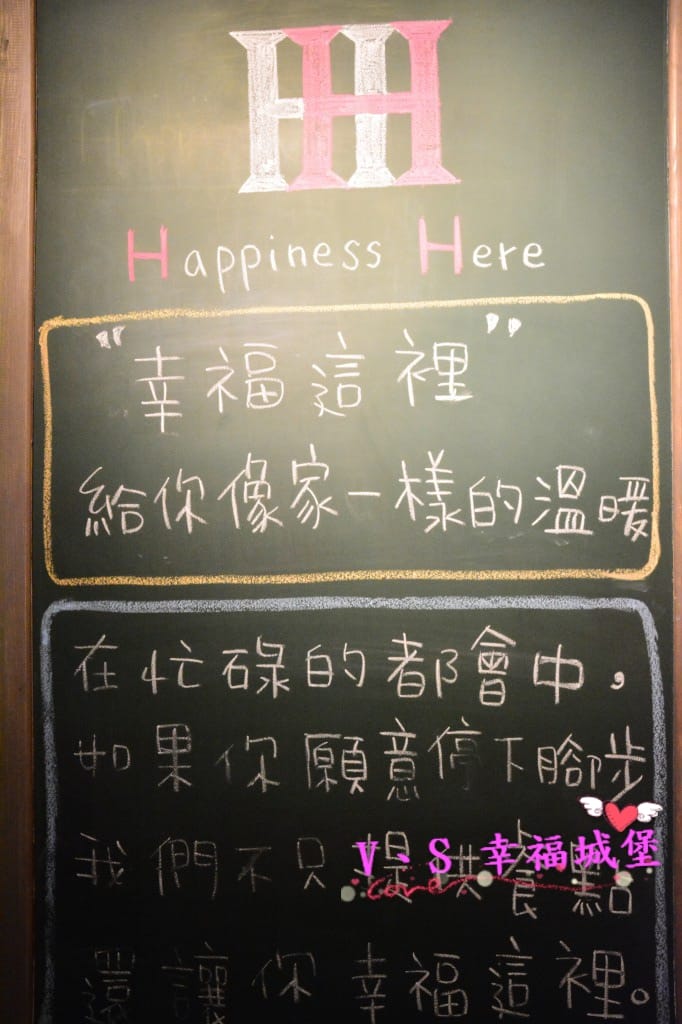 HH
Happiness Here
"幸福這裡"
給你像家一樣的溫暖
在忙碌的都會中，
如果你願意停下腳步
我們不只提供餐點
V、S 幸福城堡
love
還讓你幸福這裡。